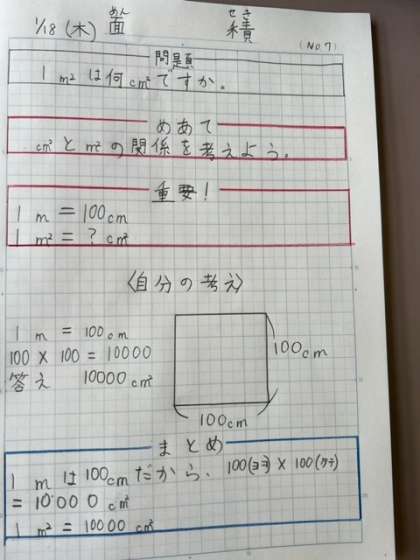 めん せき
1/18 (木) 面 積
(No.7)
問題
1 m² は何cm²ですか。
めあて
cm² と m² の関係を考えよう。
重要!
1 m = 100cm
1 m² = ? cm²
〈自分の考え〉
1 m = 100cm
100 × 100 = 10000
答え 10000 cm²
100cm
100cm
まとめ
1 m は100cmだから、100(ヨコ) × 100(タテ)
= 10000 cm²
1 m² = 10000 cm²